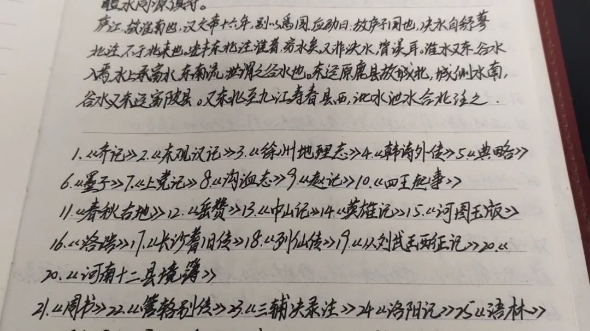 庐江,故淮南也,汉文帝十六年,别以为国,应劭曰,故庐子国也,决水自舒蓼
北注,不于北来也,安丰东北注淮者,穷水矣,又非决水,皆误耳。淮水又东,谷水
入焉,水上承富水,东南流,世谓之谷水也。东迳原鹿县故城北,城侧水南,
谷水又东迳富陂县。又东北至九江寿春县西,沘水池水合北注之.
1.《齐记》2.《东观汉记》3.《徐州地理志》4.《韩诗外传》5《典略》
6.《墨子》7.《上党记》8.《沟洫志》9.《赵记》10.《四王起事》
11.《春秋古地》12.《 赞》13.《中山记》14.《英雄记》15.《河图玉版》
16.《洛 》17.《长沙耆旧传》18.《列仙传》19.《从刘武王西征记》20.《
20.《河南十二县境簿》
21.《周书》22.《管辂别传》23.《三辅决录注》24《洛阳记》25《语林》